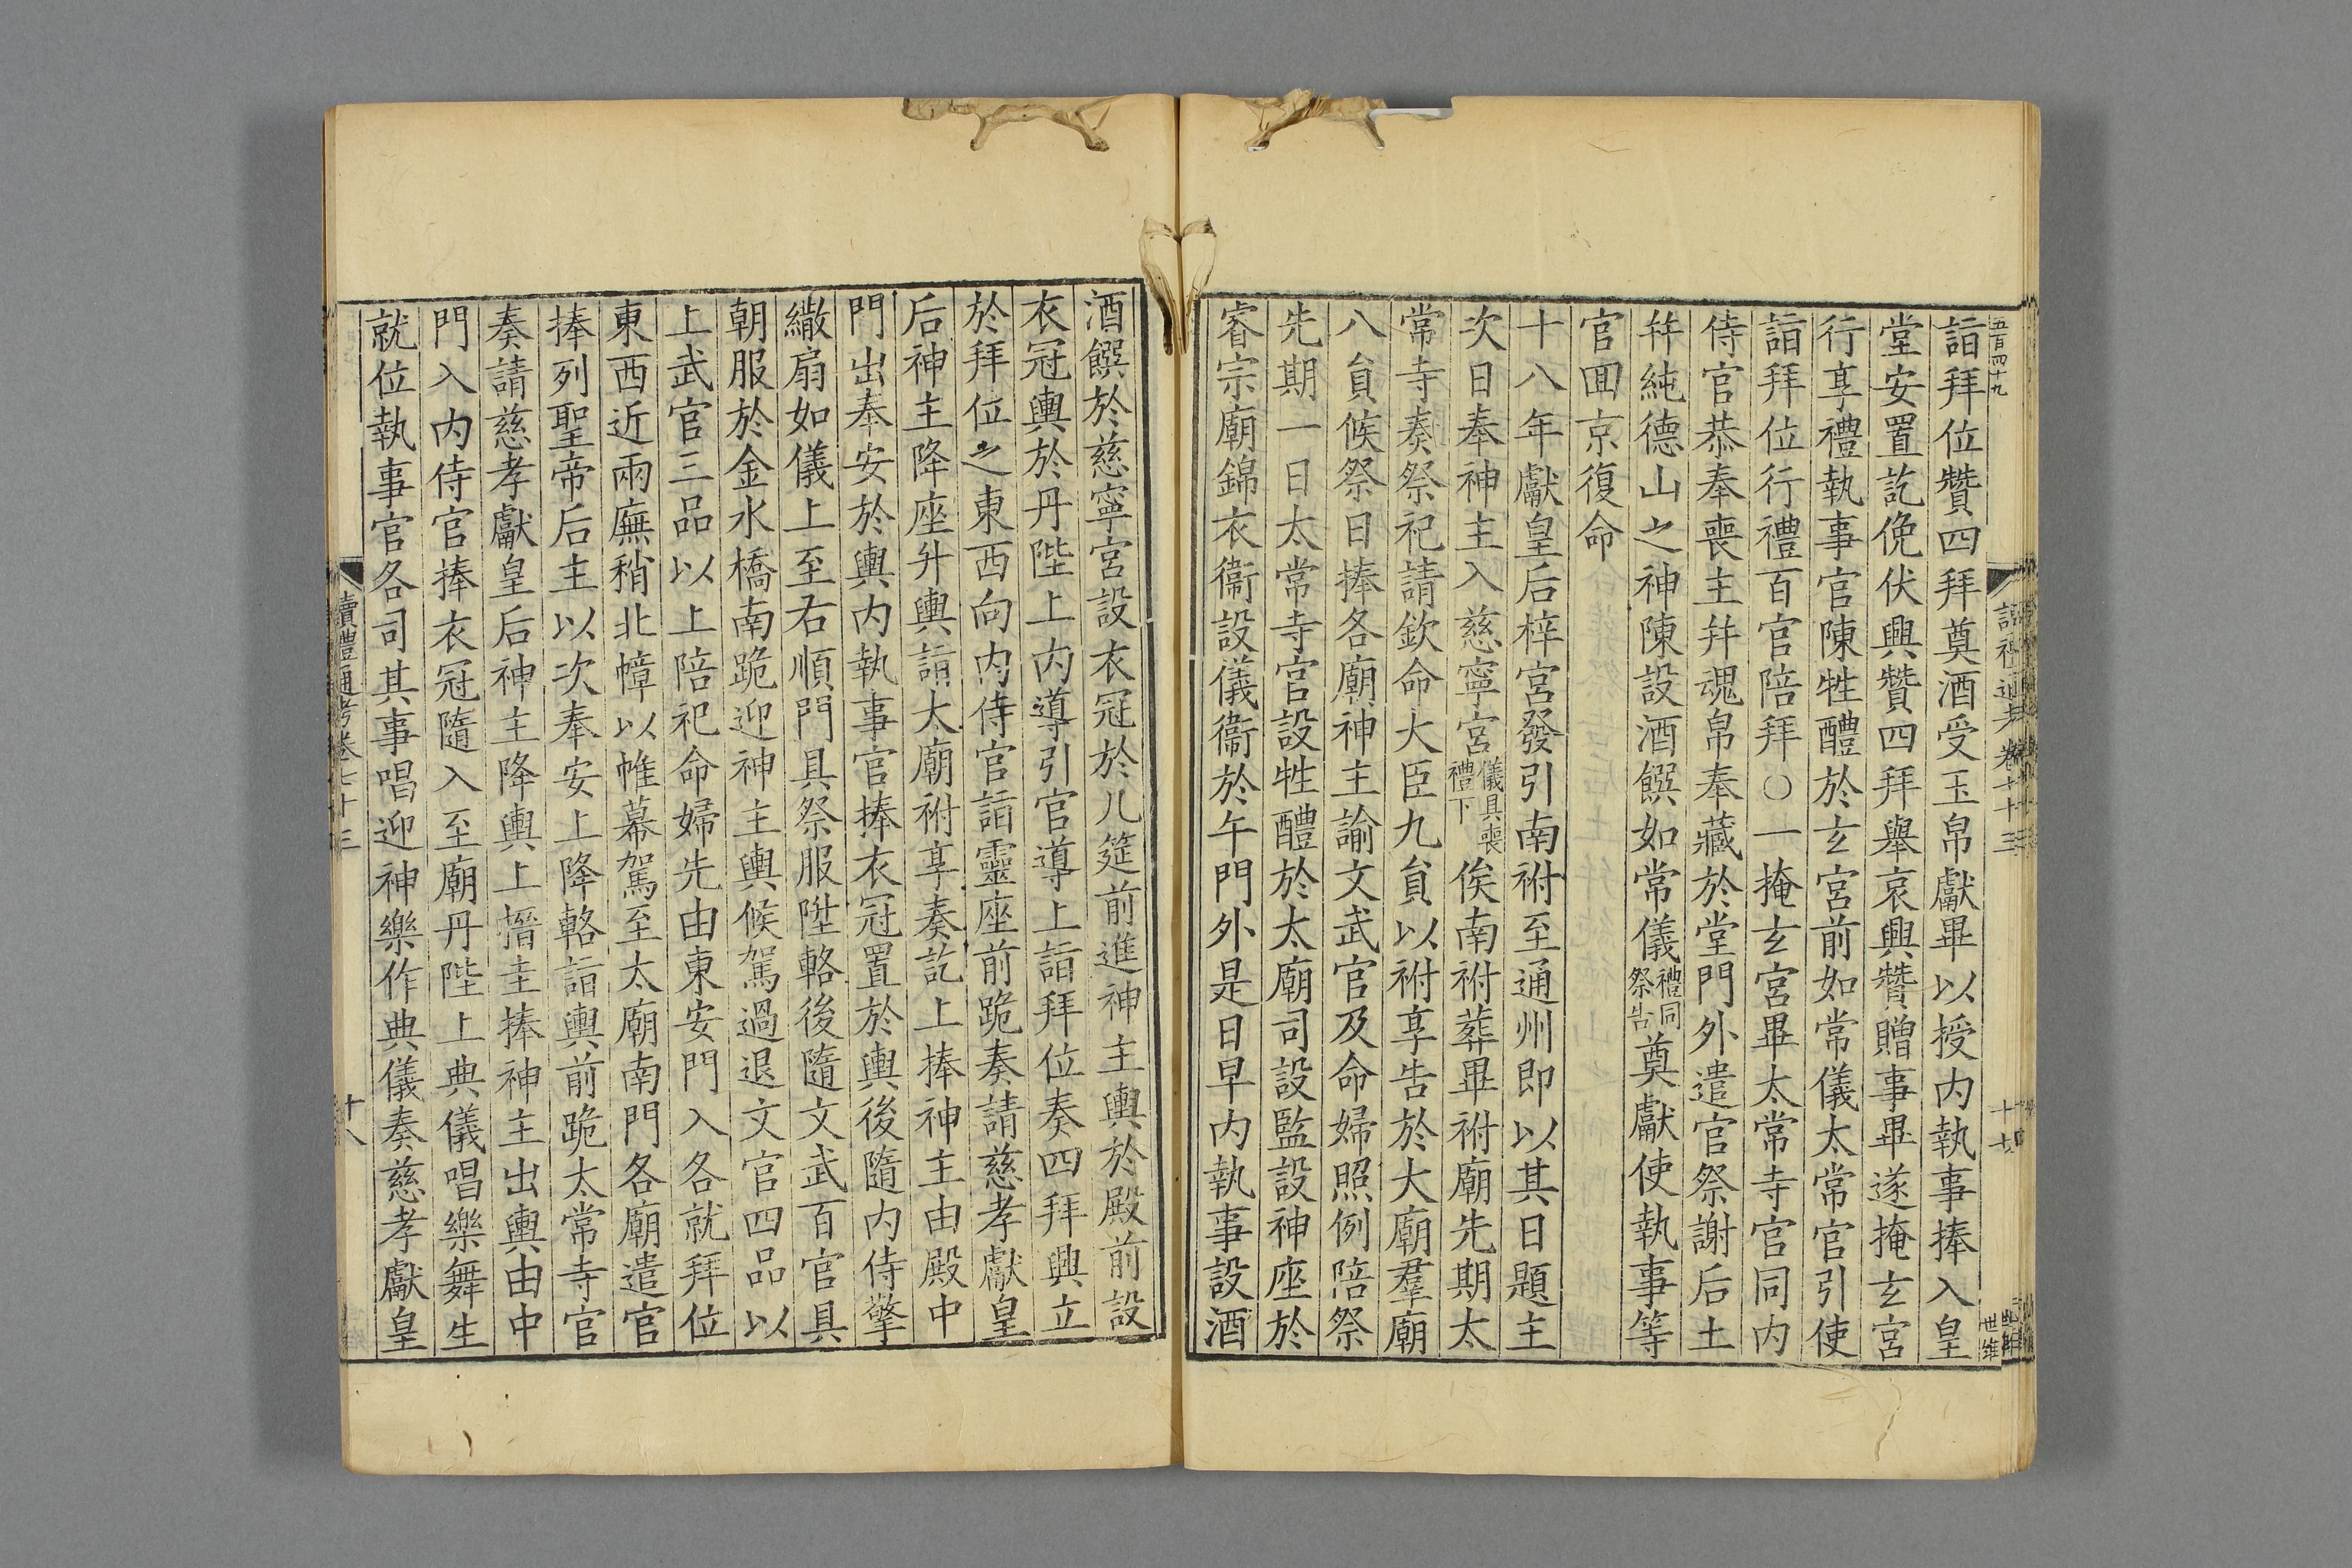 五百四十九
詣拜位贊四拜奠酒受玉帛獻畢以授内執事捧入皇
堂安置訖俛伏興贊四拜舉哀興贊贈事畢遂掩玄宮
行享禮執事官陳牲醴於玄宮前如常儀太常官引使
詣拜位行禮百官陪拜○一掩玄宮畢太常寺官同内
侍官恭奉喪主并魂帛奉藏於堂門外遣官祭謝后土
并純德山之神陳設酒饌如常儀禮同祭告奠獻使執事等
官囬京復命
十八年獻皇后梓宮發引南祔至通州即以其日題主
次日奉神主入慈寧宮儀具喪禮下俟南祔葬畢祔廟先期太
常寺奏祭祀請欽命大臣九員以祔享告於大廟羣廟
八員候祭日捧各廟神主諭文武官及命婦照例陪祭
先期一日太常寺官設牲醴於太廟司設監設神座於
睿宗廟錦衣衞設儀衞於午門外是日早内執事設酒
酒饌於慈寧宮設衣冠於儿筵前進神主輿於殿前設
衣冠輿於丹陛上内導引官導上詣拜位奏四拜興立
於拜位之東西向内侍官詣靈座前跪奏請慈孝獻皇
后神主降座升輿詣大廟祔享奏訖上捧神主由殿中
門出奉安於輿内執事官捧衣冠置於輿後隨内侍擎
繖扇如儀上至右順門具祭服陞輅後隨文武百官具
朝服於金水橋南跪迎神主輿候駕過退文官四品以
上武官三品以上陪祀命婦先由東安門入各就拜位
東西近兩廡稍北幛以帷幕駕至太廟南門各廟遣官
捧列聖帝后主以次奉安上降輅詣輿前跪太常寺官
奏請慈孝獻皇后神主降輿上搢圭捧神主出輿由中
門入内侍官捧衣冠隨入至廟丹陛上典儀唱樂舞生
就位執事官各司其事唱迎神樂作典儀奏慈孝獻皇
讀禮通考卷七十三
十八